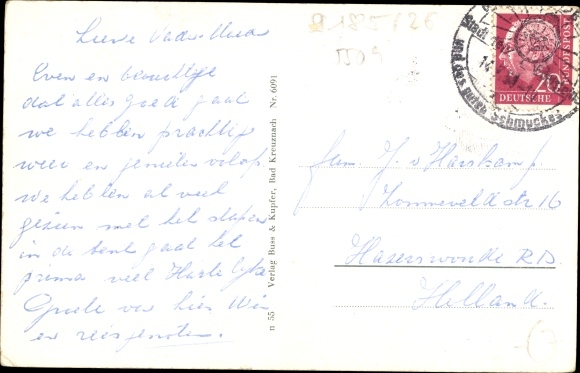 Lieve Vader Moeder
Even en berichtje
dat alles goed gaat
we hebben prachtig
weer en genieten volop.
we hebben al veel
gezien met het slapen
in de tent gaat het
prima veel Hartelijke
Groete van hier Wim
en reisgenoten.
n 55 Verlag Buss & Kupfer, Bad Kreuznach Nr. 6091
Fam. J. v Harskamp.
str 16
Hazerswoude R.D.
Holland.
DEUTSCHE BUNDESPOST
20
Schmuckes